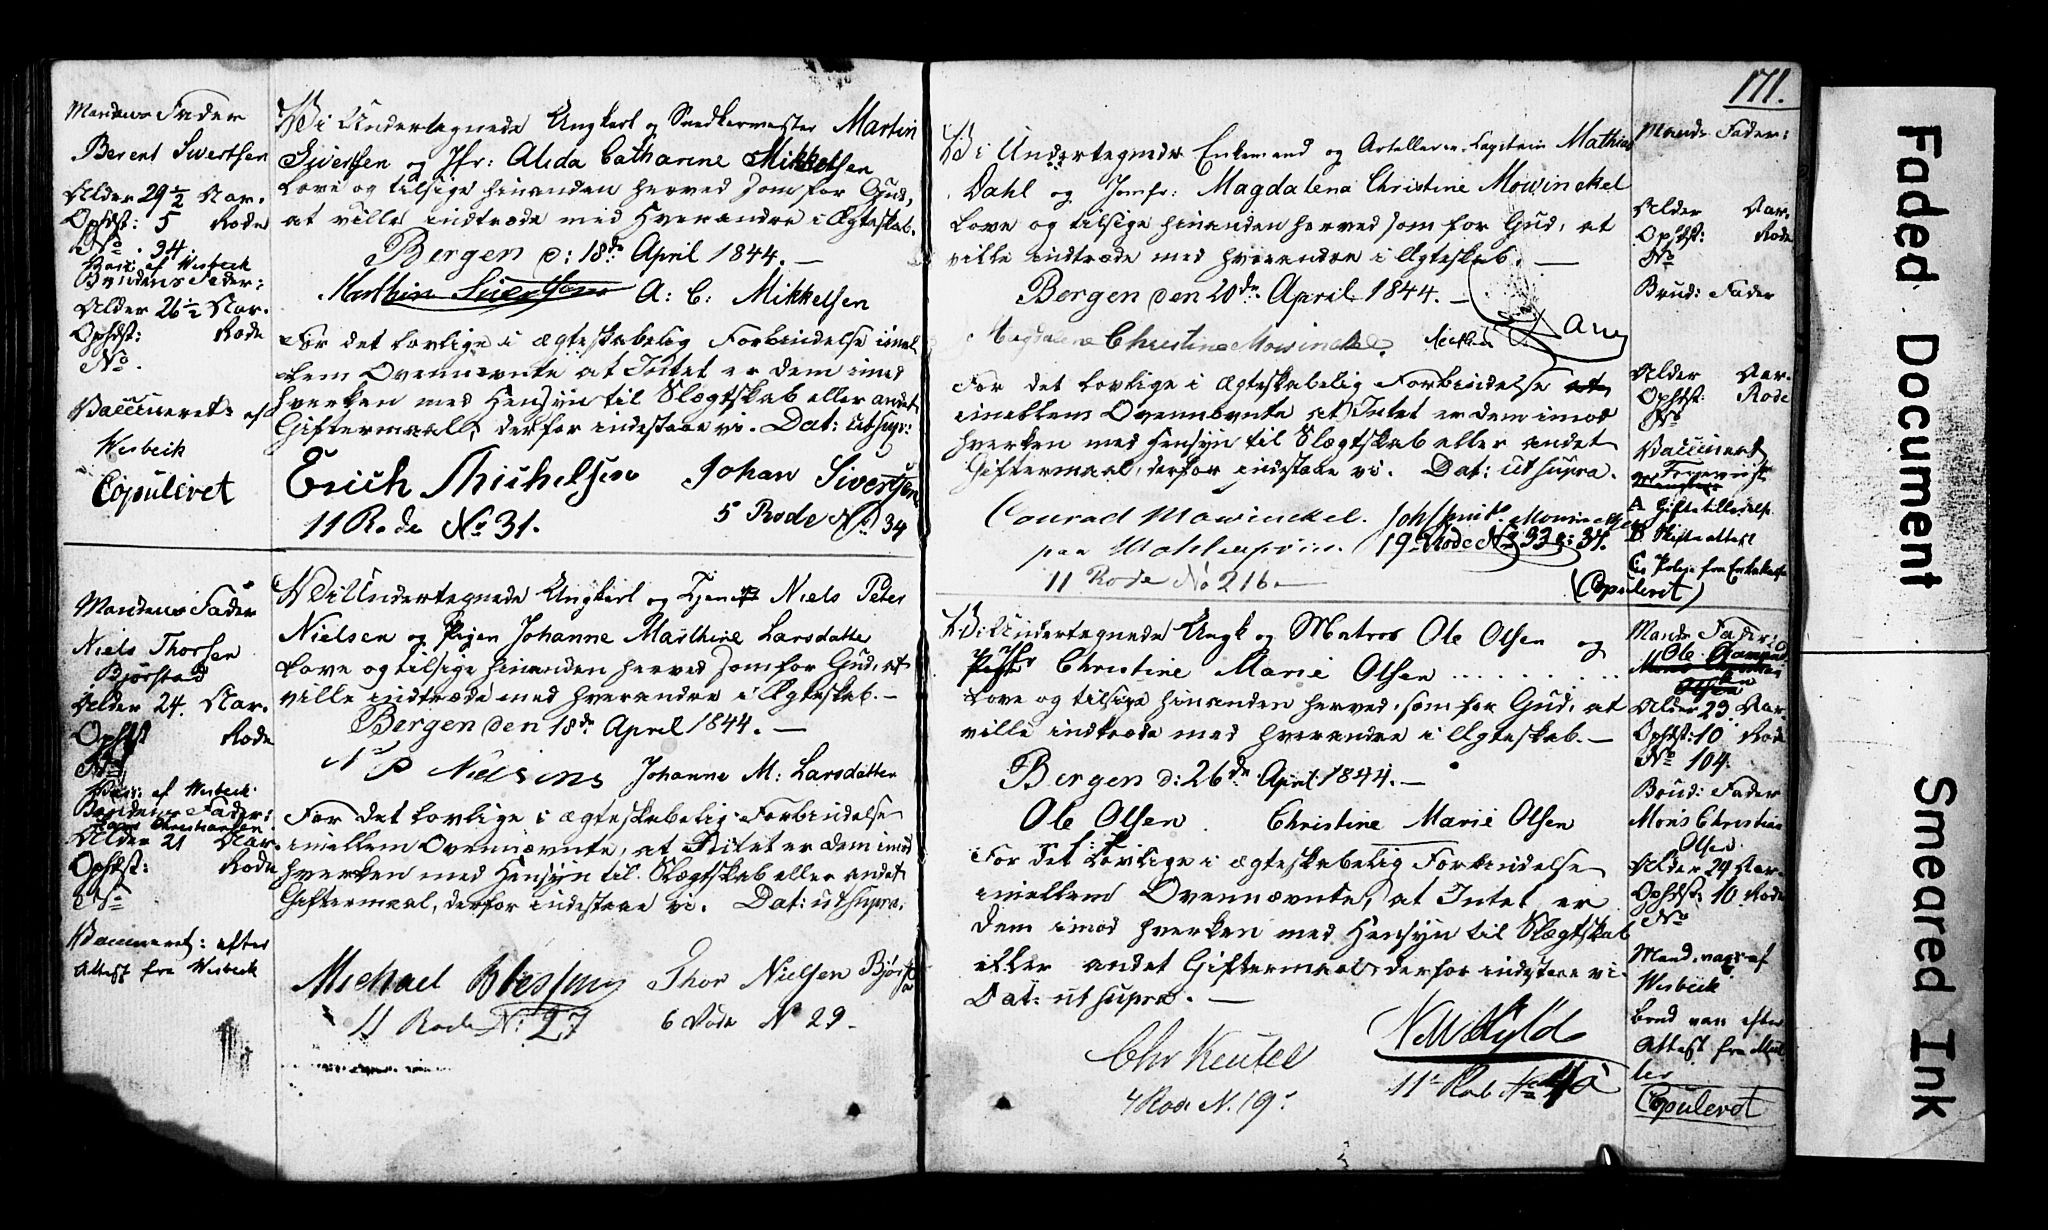 Mandens Fader
Berent Sivertsen
Alder 29 1/2 Aar.
Ophdst: 5 Rode
No. 34
Vacc: af Wesbeck
Brudens Fader:
Alder 26 1/2 Aar.
Ophdst: Rode
No.
Vaccineret: af
Wesbeck
Copuleret
Vi Undertegnede Ungkarl og Snedkermester Martin
Sivertsen og Jfr: Alida Catharine Mikkelsen
Love og tilsige hinanden herved som for Gud,
at ville indtræde med hverandre i Ægteskab.
Bergen d: 18de April 1844. —
Marthin Sivertsen A: C: Mikkelsen
For det lovlige i ægteskabelig Forbindelse imel
lem Ovennævnte at Intet er dem imod
hverken med Hensyn til Slægtskab eller andet
Giftermaal, derfor indestaae vi. Dat: ut supr:
Erich Michelsen Johan Sivertsen
11 Rode No 31. 5 Rode No 34
Mandens Fader
Niels Thorsen
Bjørstad
Alder 24. Aar.
Ophdst Rode
No
Vacc: af Wesbeck
Brudens Fader:
Lars Christiansen
Alder 21 Aar.
Ophdst: Rode
No
Vaccineret: efter
Attest fra Wesbeck
Vi Undertegnede Ungkarl og Tjener Niels Peter
Nielsen og Pigen Johanne Marthine Larsdatter
Love og tilsige hinanden herved som for Gud, at
ville indtræde med hverandre i Ægteskab. —
Bergen den 18de April 1844. —
N P Nielsens Johanne M: Larsdatter
For det lovlige i ægteskabelig Forbindelse
imellem Ovennævnte, at Intet er dem imod
hverken med Hensyn til Slægtskab eller andet
Giftermaal, derfor indestaae vi. Dat: ut supra.
Michael Thor Nielsen Bjørstad
11 Rode No: 27 6 Rode N 29.
171.
Vi Undertegnede Enkemand og Artellerie-Capitain Mathias
Dahl og Jomfr: Magdalena Christine Mowinckel
Love og tilsige hinanden herved som for Gud, at
ville indtræde med hverandre i Ægteskab. —
Bergen den 20de April 1844. —
Magdalene Christine Mowinckel.
For det lovlige i ægteskabelig Forbindelse
imellem Ovennævnte at Intet er dem imod
hverken med Hensyn til Slægtskab eller andet
Giftermaal, derfor indestaae vi. Dat: ut supra.
Conrad Mowinckel. Joh Mowinckel
paa 19de Rode No 33 & 34.
11 Rode No 216. —
(Copuleret)
Mands Fader:
Alder Aar.
Ophdst: Rode
No
Brud: Fader
Alder Aar.
Ophdst: Rode
No
Vaccineret
A Giftetilladelse
B Skifteattest
Vi Undertegnede Ungk og Matros Ole Olsen og
Jfr Christine Marie Olsen ..........
Love og tilsige hinanden herved, som for Gud, at
ville indtræde med hverandre i Ægteskab. —
Bergen d: 26de April 1844. —
Ole Olsen. Christine Marie Olsen
For det Lovlige i ægteskabelig Forbindelse
imellem Ovennævnte, at Intet er
dem imod hverken med Hensyn til Slægtskab
eller andet Giftermaal, derfor indestaae vi.
Dat: ut supra. —
Chr Keutel
4 Rode N. 19.
Mands Fader:
Ole
Alder 23. Aar.
Ophdst: 10 Rode
No 104.
Brud: Fader
Mons Christian
Olsen
Alder 24 Aar.
Ophdst: 10 Rode
No
Mand. vacc af
Wesbeck
brud vacc efter
Attest fra Møl
ler
Copuleret
Faded Document
Smeared Ink